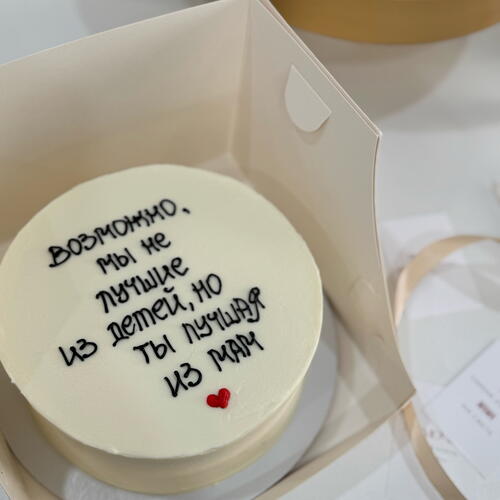 ВОЗМОЖНО,
МЫ НЕ
ЛУЧШИЕ
ИЗ ДЕТЕЙ, НО
ТЫ ЛУЧШАЯ
ИЗ МАМ